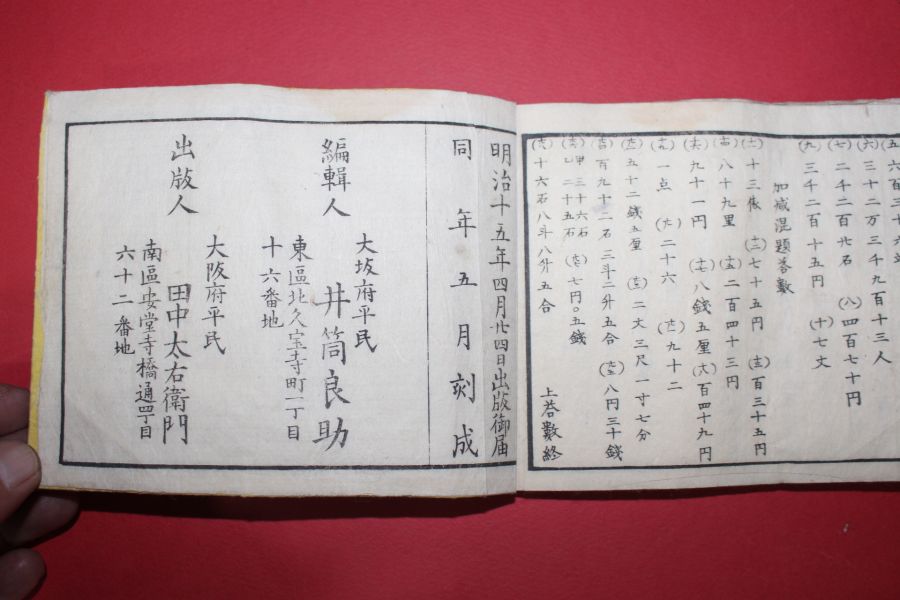 三十二万三千九百十三人
二千二百廿石 (八)四百七十円
三千二百十五円 (十)七丈
加減混題答數
十三俵 (十二)七十五円 (十三)百三十五円
八十九里 (十五)二百四十三円
九十一円 (十七)八銭五厘 (十八)百四十九円
一点 (廿)二十六 (廿一)九十二
五十二銭五厘 (廿三)二丈三尺一寸七分
百九十二石二斗二升五合 (廿五)八円三十銭
甲三十六石
乙二十五石 七円〇五銭
十六石八斗八升五合
上荅數終
明治十五年四月廿四日出版御届
同年五月刻成
編輯人
大坂府平民
井筒良助
東區北久宝寺町一丁目
十六番地
出版人
大阪府平民
田中太右衛門
南區安堂寺橋通四丁目
六十二番地